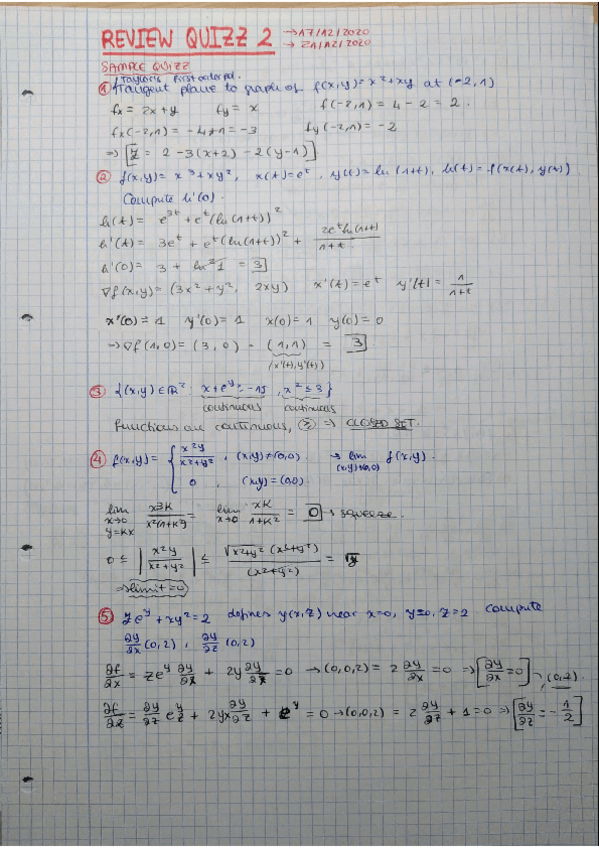 REVIEW QUIZZ 2 → 17/12/2020
→ 21/12/2020
SAMPLE QUIZZ
Taylor's first order pol.
① Tangent plane to graph of f(x,y)=x²+xy at (-2,1)
fx = 2x+y fy = x f(-2,1) = 4 - 2 = 2.
fx(-2,1) = -4+1 = -3 fy(-2,1) = -2
⇒ [Z = 2 -3(x+2) -2(y-1)]
② f(x,y)= x³+xy², x(t)=e^t, y(t)=ln(1+t), h(t)=f(x(t), y(t)).
Compute h'(0).
h(t)= e^3t + e^t(ln(1+t))²
h'(t)= 3e^t + e^t(ln(1+t))² + 2e^t ln(1+t)/1+t
h'(0)= 3 + ln²1 = 3
∇f(x,y)= (3x²+y², 2xy) x'(t)=e^t y'(t)= 1/1+t
x'(0)=1 y'(0)=1 x(0)=1 y(0)=0
→ ∇f(1,0)= (3,0) · (1,1) = 3
(x'(t),y'(t))
③ {(x,y)∈ℝ² x+e^y ≥ -15, x² ≤ 3}
continuous continuous
functions are continuous, (≥) ⇒ CLOSED SET.
④ f(x,y)= { x²y/x²+y², (x,y)≠(0,0) → lim (x,y)→(0,0) f(x,y).
0, (x,y)=(0,0).
lim x→0 y=kx x3K/x²(1+K²) = lim x→0 xK/1+K² = 0 → squeeze.
0 ≤ |x²y/x²+y²| ≤ √x²+y² (x²+y²)/(x²+y²) = √y
⇒ limit=0
⑤ Ze^y + xy² = 2 defines y(x,z) near x=0, y=0, z=2 compute
∂y/∂x (0,2), ∂y/∂z (0,2)
∂f/∂x = ze^y ∂y/∂x + 2y ∂y/∂x = 0 → (0,0,2) = 2 ∂y/∂x = 0 ⇒ [∂y/∂x = 0] (0,2)
∂f/∂z = ∂y/∂z e^y z + 2yx ∂y/∂z + e^y = 0 → (0,0,2) = 2 ∂y/∂z + 1 = 0 ⇒ [∂y/∂z = -1/2]